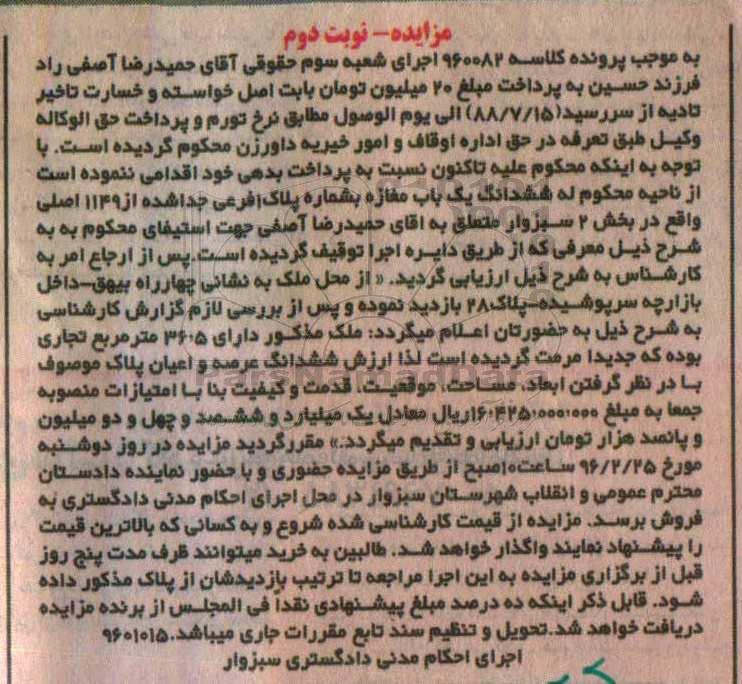 مزایده- نوبت دوم
به موجب پرونده کلاسه ۹۶۰۰۸۲ اجرای شعبه سوم حقوقی آقای حمیدرضا آصفی راد
فرزند حسین به پرداخت مبلغ ۲۰ میلیون تومان بابت اصل خواسته و خسارت تاخیر
تادیه از سررسید(۸۸/۷/۱۵) الی یوم الوصول مطابق نرخ تورم و پرداخت حق الوکاله
وکیل طبق تعرفه در حق اداره اوقاف و امور خیریه داورزن محکوم گردیده است. با
توجه به اینکه محکوم علیه تاکنون نسبت به پرداخت بدهی خود اقدامی ننموده است
از ناحیه محکوم له ششدانگ یک باب مغازه بشماره پلاک۱فرعی جداشده از۱۱۴۹ اصلی
واقع در بخش ۲ سبزوار متعلق به اقای حمیدرضا آصفی جهت استیفای محکوم به به
شرح ذیل معرفی که از طریق دایره اجرا توقیف گردیده است.پس از ارجاع امر به
کارشناس به شرح ذیل ارزیابی گردید. « از محل ملک به نشانی چهارراه بیهق-داخل
بازارچه سرپوشیده-پلاک۲۸ بازدید نموده و پس از بررسی لازم گزارش کارشناسی
به شرح ذیل به حضورتان اعلام میگردد: ملک مذکور دارای ۳۶.۵ مترمربع تجاری
بوده که جدیدا مرمت گردیده است لذا ارزش ششدانگ عرصه و اعیان پلاک موصوف
با در نظر گرفتن ابعاد، مساحت، موقعیت، قدمت و کیفیت بنا با امتیازات منصوبه
جمعا به مبلغ ۱۶.۴۲۵.۰۰۰.۰۰۰ریال معادل یک میلیارد و ششصد و چهل و دو میلیون
و پانصد هزار تومان ارزیابی و تقدیم میگردد.» مقررگردید مزایده در روز دوشنبه
مورخ ۹۶/۲/۲۵ ساعت۱۰صبح از طریق مزایده حضوری و با حضور نماینده دادستان
محترم عمومی و انقلاب شهرستان سبزوار در محل اجرای احکام مدنی دادگستری به
فروش برسد. مزایده از قیمت کارشناسی شده شروع و به کسانی که بالاترین قیمت
را پیشنهاد نمایند واگذار خواهد شد. طالبین به خرید میتوانند ظرف مدت پنج روز
قبل از برگزاری مزایده به این اجرا مراجعه تا ترتیب بازدیدشان از پلاک مذکور داده
شود. قابل ذکر اینکه ده درصد مبلغ پیشنهادی نقداً فی المجلس از برنده مزایده
دریافت خواهد شد.تحویل و تنظیم سند تابع مقررات جاری میباشد.۹۶۰۱۰۱۵
اجرای احکام مدنی دادگستری سبزوار